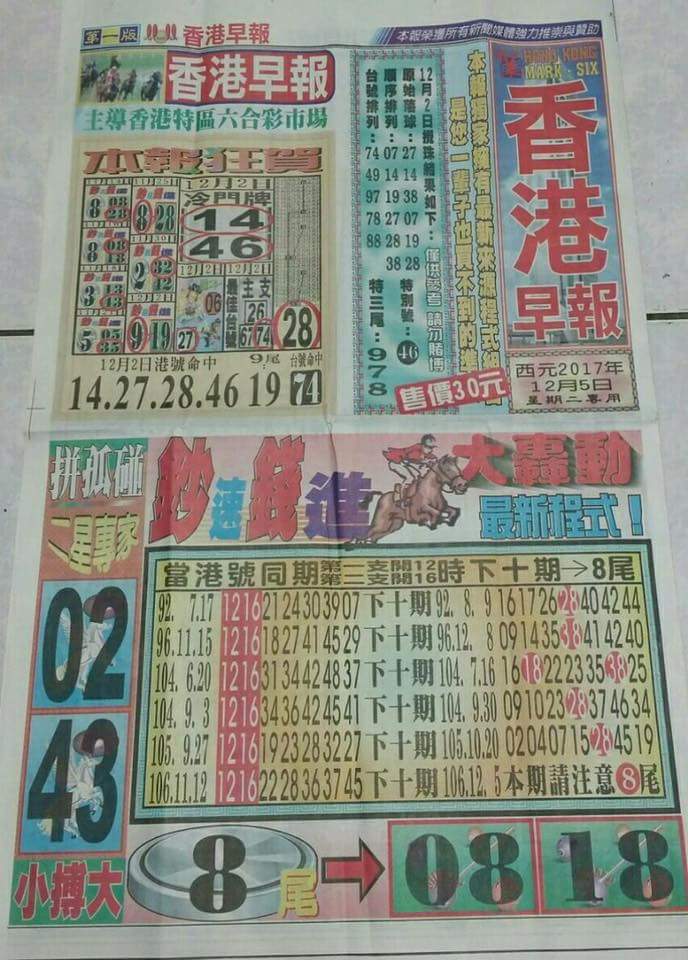 第一版
香港早報
本報榮獲所有新聞媒體強力推崇與贊助
香港早報
主導香港特區六合彩市場
HANG KONG
MARK SIX
香港早報
西元2017年
12月5日
星期二專用
售價30元
本報獨家擁有最新來源程式組
是您一輩子也買不到的準
12月2日攪珠結果如下：僅供參考 請勿賭博
原始落球：27 14 38 07 19 28 特別號：46
順序排列：07 14 19 27 28 38
台號排列：74 49 97 78 88 特三尾：978
本報狂賀
12月2日
冷門牌
14
46
8 28
2
9 19
12月2日
12月2日
最佳台號
06
27
主支
26
67 74
28
12月2日港號命中
9尾
台號命中
14.27.28.46 19 74
拼孤碰
二星專家
02
43
小搏大
鈔速錢進
大轟動
最新程式！
當港號同期第一支開12第二支開16時下十期→8尾
92. 7.17 12 16 21 24 30 39 07 下十期 92. 8. 9 16 17 26 28 40 42 44
96.11.15 12 16 18 27 41 45 29 下十期 96.12. 8 09 14 35 38 41 42 40
104. 6.20 12 16 31 34 42 48 37 下十期 104. 7.16 16 18 22 23 35 38 25
104. 9. 3 12 16 34 36 42 45 41 下十期 104. 9.30 09 10 23 28 37 46 34
105. 9.27 12 16 19 23 28 32 27 下十期 105.10.20 02 04 07 15 28 45 19
106.11.12 12 16 22 28 36 37 45 下十期 106.12. 5 本期請注意 8尾
8尾
08
18